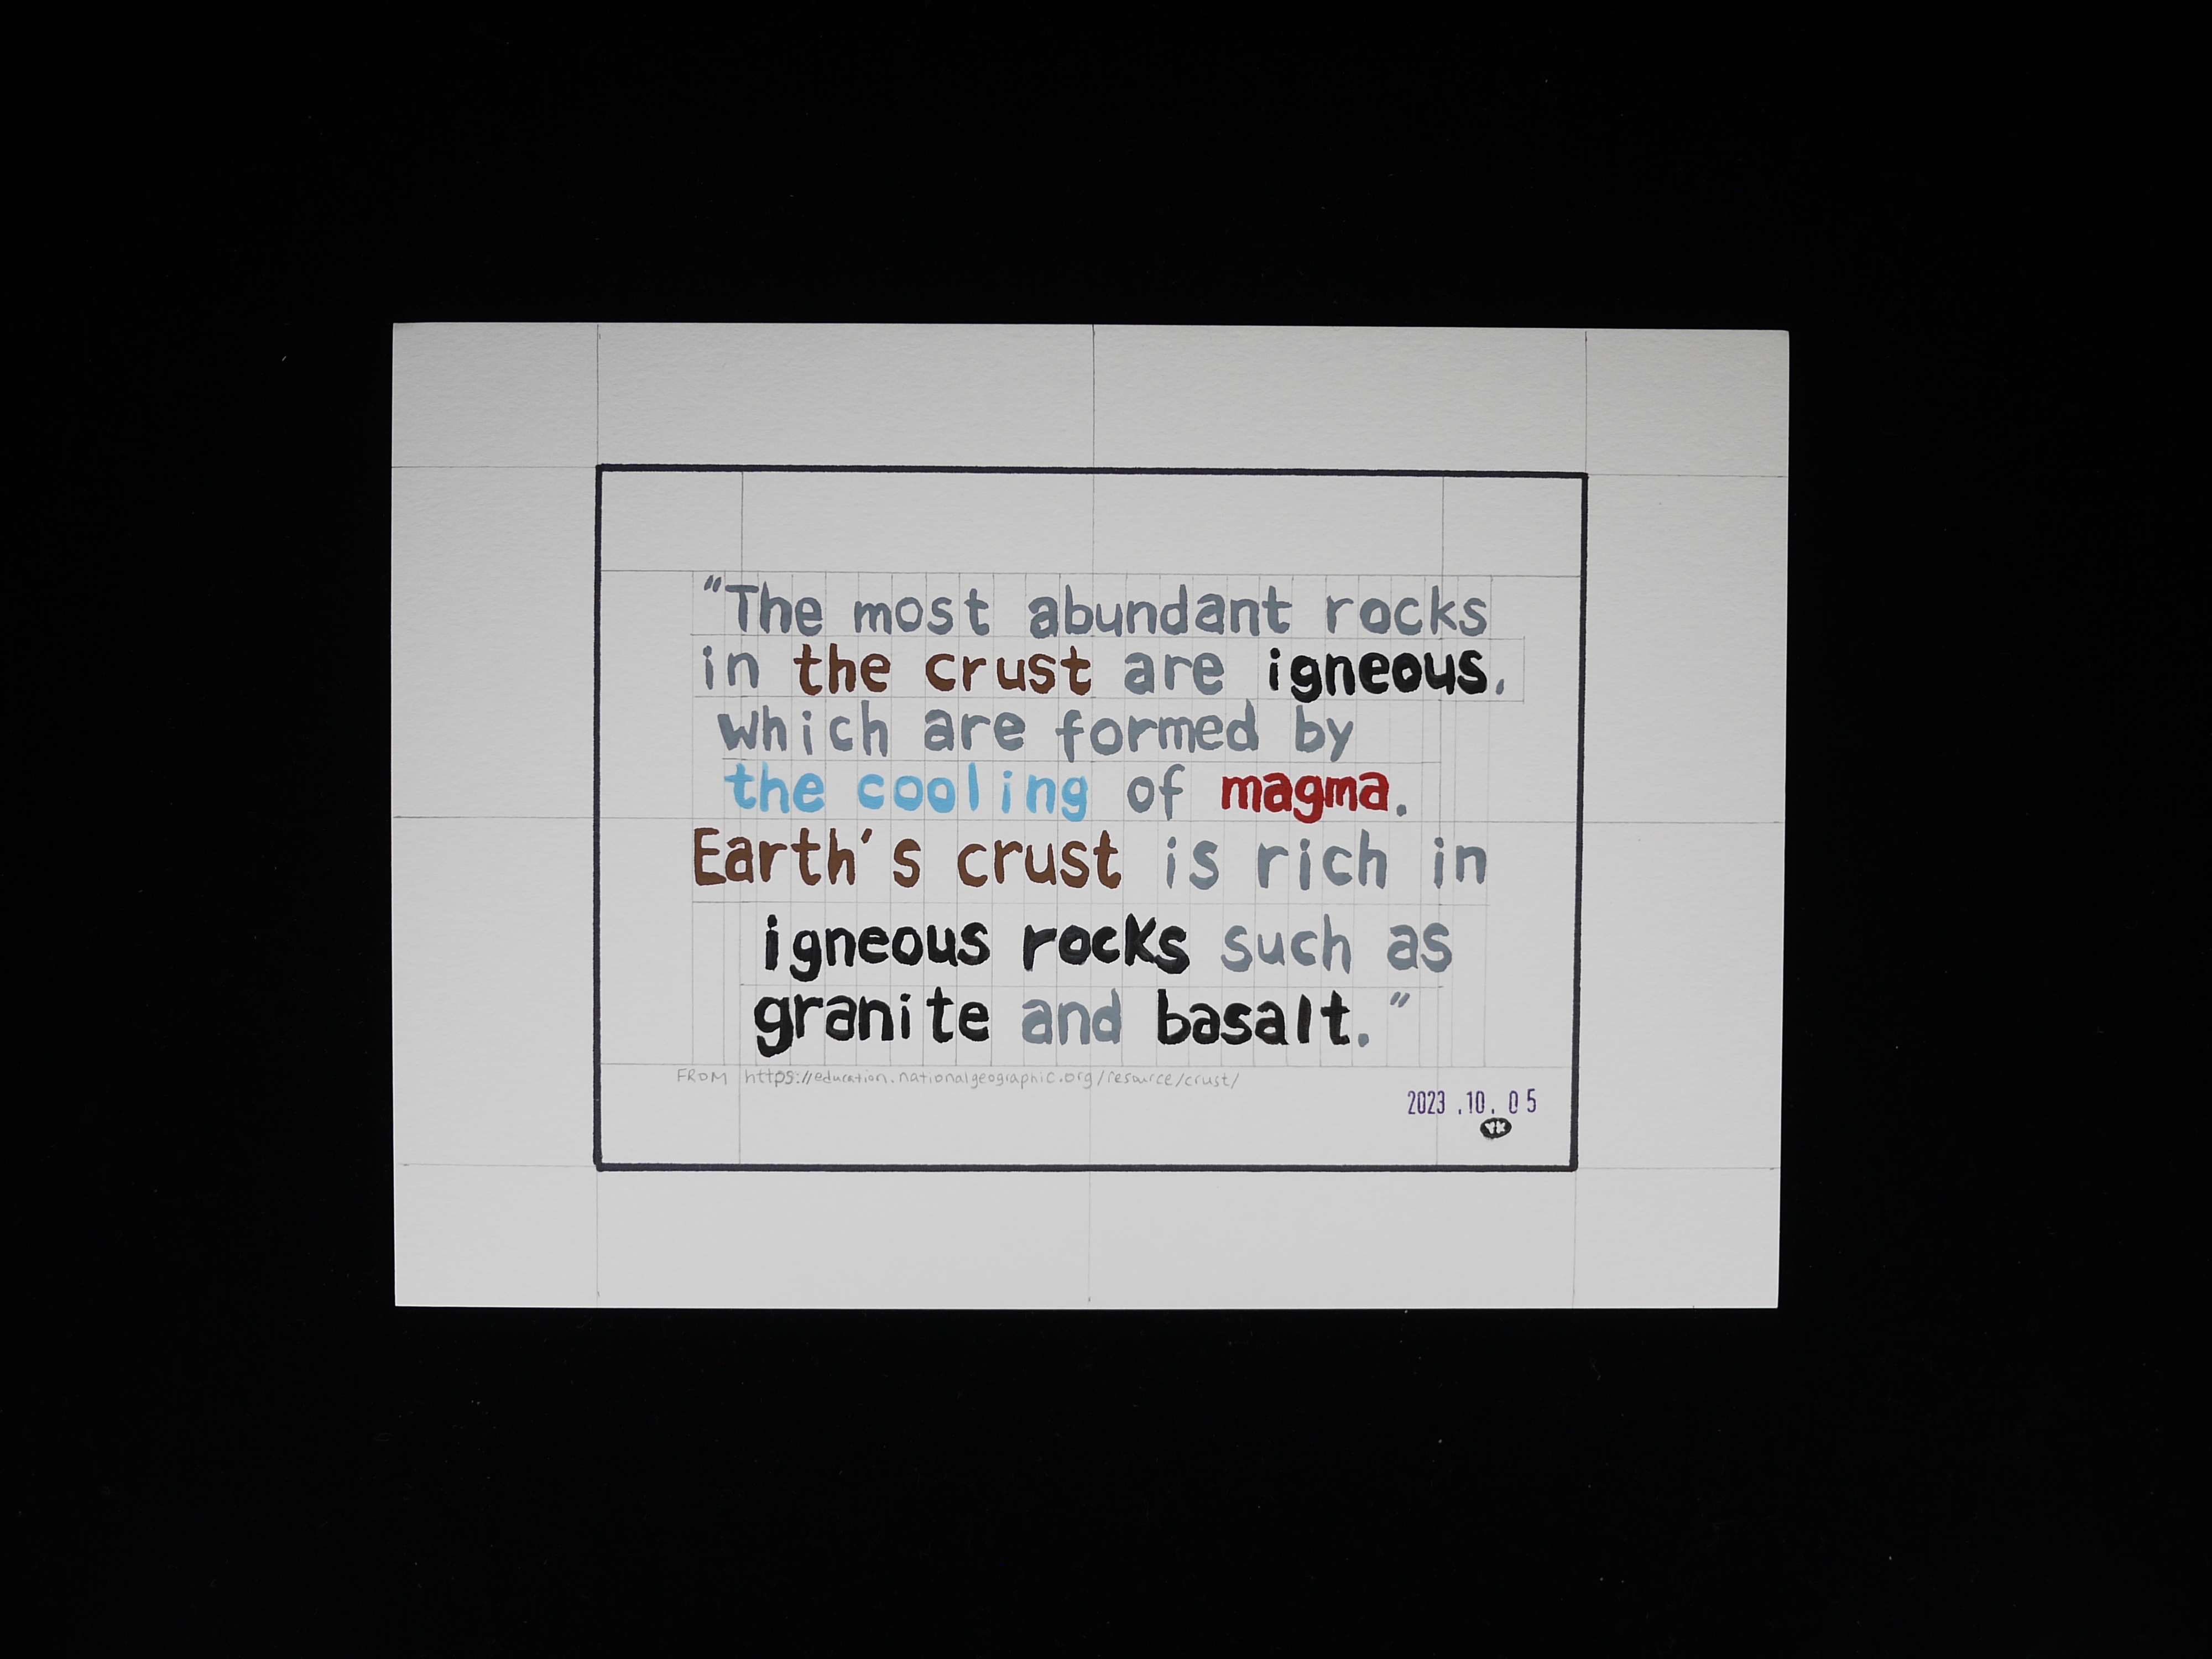 "The most abundant rocks
in the crust are igneous,
which are formed by
the cooling of magma.
Earth's crust is rich in
igneous rocks such as
granite and basalt."
FROM https://education.nationalgeographic.org/resource/crust/
2023.10.05
YK